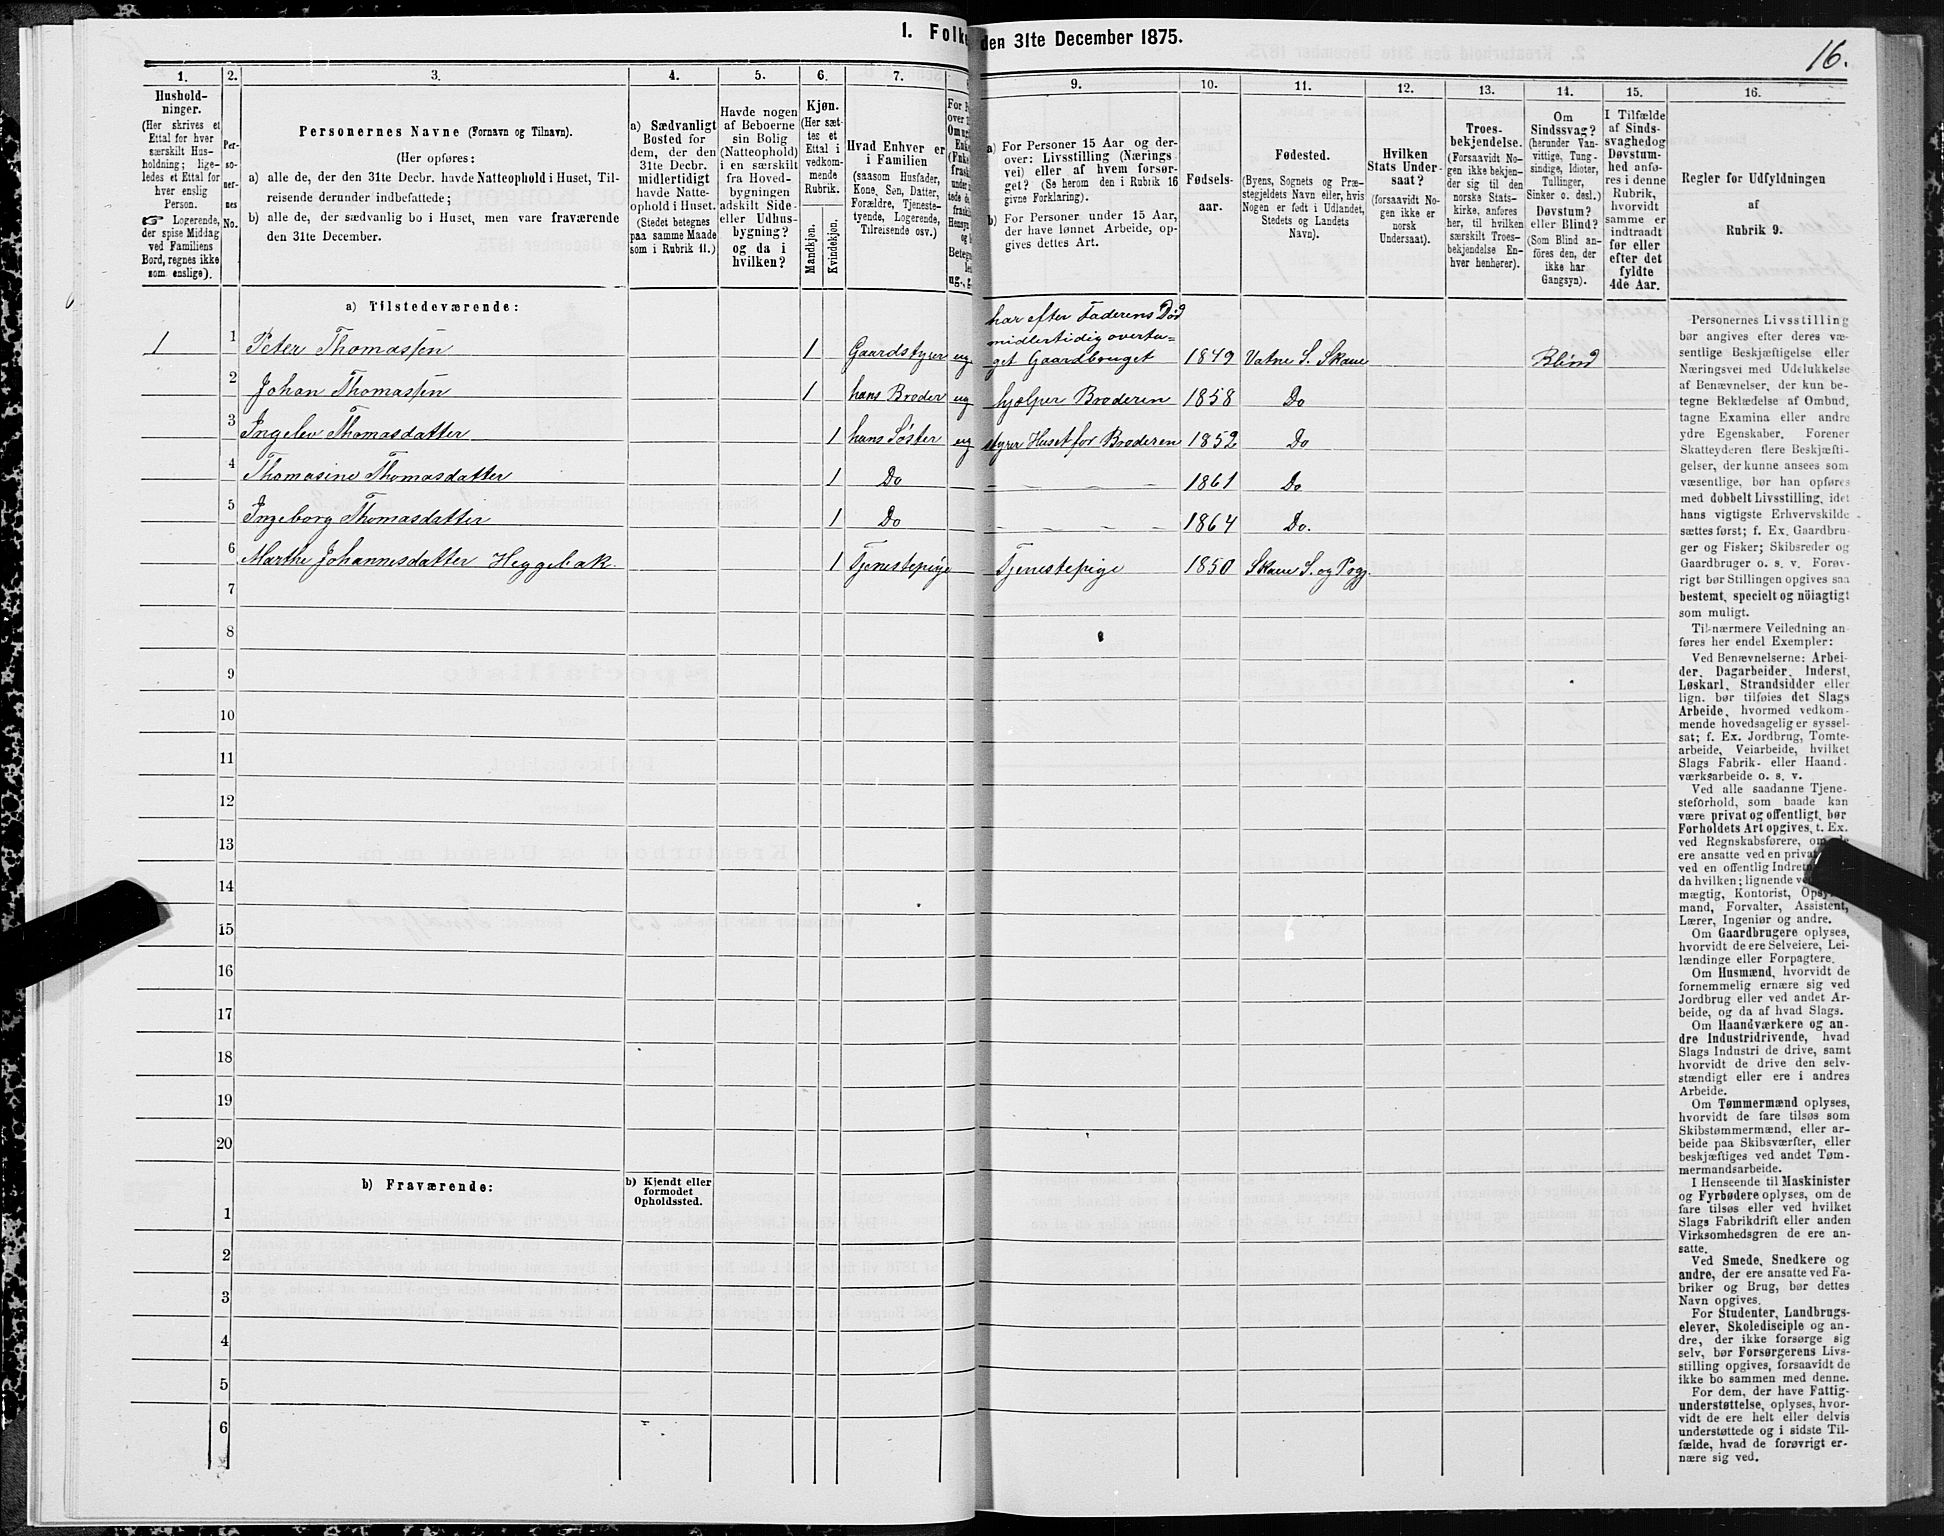 1. Folke
den 31te December 1875.
16.
1.
2.
3.
4.
5.
6.
7.
9.
10.
11.
12.
13.
14.
15.
16.
Hushold-
ninger.
(Her skrives et
Ettal for hver
særskilt Hus-
holdning; lige-
ledes et Ettal for
hver enslig
Person.
☞ Logerende,
der spise Middag
ved Familiens
Bord, regnes ikke
som enslige).
Per-
so-
ner-
nes
No.
Personernes Navne (Fornavn og Tilnavn).
(Her opføres:
a) alle de, der den 31te Decbr. havde Natteophold i Huset, Til-
reisende derunder indbefattede;
b) alle de, der sædvanlig bo i Huset, men vare fraværende
den 31te December.
a) Sædvanligt
Bosted for
dem, der den
31te Decbr.
midlertidigt
havde Natte-
ophold i Huset.
(Stedet betegnes
paa samme Maade
som i Rubrik 11.)
Havde nogen
af Beboerne
sin Bolig
(Natteophold)
i en særskilt
fra Hoved-
bygningen
adskilt Side-
eller Udhus-
bygning?
og da i
hvilken?
Kjøn.
(Her sæt-
tes et
Ettal i
vedkom-
mende
Rubrik.
Mandkjøn.
Kvindekjøn.
Hvad Enhver er
i Familien
(saasom Husfader,
Kone, Søn, Datter,
Forældre, Tjeneste-
tyende, Logerende,
Tilreisende osv.)
a) For Personer 15 Aar og der-
over: Livsstilling (Nærings
vei) eller af hvem forsør-
get? (Se herom den i Rubrik 16
givne Forklaring).
b) For Personer under 15 Aar,
der have lønnet Arbeide, op-
gives dettes Art.
Fødsels-
aar.
Fødested.
(Byens, Sognets og Præ-
stegjeldets Navn eller, hvis
Nogen er født i Udlandet,
Stedets og Landets
Navn).
Hvilken
Stats Under-
saat?
(forsaavidt No-
gen ikke er
norsk
Undersaat).
Troes-
bekjendelse.
(Forsaavidt No-
gen ikke bekjen-
der sig til den
norske Stats-
kirke, anføres
her, til hvilken
særskilt Troes-
bekjendelse En-
hver henhører).
Om
Sindssvag?
(herunder Van-
vittige, Tung-
sindige, Idioter,
Tullinger,
Sinker o. desl.)
Døvstum?
eller Blind?
(Som Blind an-
føres den, der
ikke har
Gangsyn).
I Tilfælde
af Sinds-
svaghed og
Døvstum-
hed anfø-
res i denne
Rubrik,
hvorvidt
samme er
indtraadt
før eller
efter det
fyldte
4de Aar.
Regler for Udfyldningen
af
Rubrik 9.
a) Tilstedeværende:
1 1 Peter Thomassen 1 Gaardstyrer ug har efter Faderens Død
midlertidig overta-
get Gaardbruget 1849 Vatne S. Skaue Blind
2 Johan Thomassen 1 hans Broder ug hjelper Broderen 1858 Do
3 Ingelev Thomasdatter 1 hans Søster ug styrer Huset for Broderen 1852 Do
4 Thomasine Thomasdatter 1 Do 1861 Do
5 Ingeborg Thomasdatter 1 Do 1864 Do.
6 Marthe Johannesdatter Heggebak. 1 Tjenestepige Tjenestepige 1850 Skaue S. og Prgj.
7
8
9
10
11
12
13
14
15
16
17
18
19
20
b) Fraværende:
b) Kjendt eller
formodet
Opholdssted.
1
2
3
4
5
6
Personernes Livsstilling
bør angives efter deres væ-
sentlige Beskjæftigelse eller
Næringsvei med Udelukkelse
af Benævnelser, der kun be-
tegne Beklædelse af Ombud,
tagne Examina eller andre
ydre Egenskaber. Forener
Skatteyderen flere Beskjæfti-
gelser, der kunne ansees som
væsentlige, bør han opføres
med dobbelt Livsstilling, idet
hans vigtigste Erhvervskilde
sættes først; f. Ex. Gaardbru-
ger og Fisker; Skibsreder og
Gaardbruger o. s. v. Forøv-
rigt bør Stillingen opgives saa
bestemt, specielt og nöiagtigt
som muligt.
Til nærmere Veiledning an-
føres her endel Exempler:
Ved Benævnelserne: Arbei-
der, Dagarbeider, Inderst,
Løskarl, Strandsidder eller
lign. bør tilføies det Slags
Arbeide, hvormed vedkom-
mende hovedsagelig er syssel-
sat; f. Ex. Jordbrug, Tomte-
arbeide, Veiarbeide, hvilket
Slags Fabrik- eller Haand-
værksarbeide o. s. v.
Ved alle saadanne Tjene-
steforhold, som baade kan
være privat og offentligt, bør
Forholdets Art opgives, t. Ex.
ved Regnskabsførere, om de
ere ansatte ved en privat
ved en offentlig Indretn
da hvilken; lignende ved
mægtig, Kontorist, Opsyns-
mand, Forvalter, Assistent,
Lærer, Ingeniør og andre.
Om Gaardbrugere oplyses,
hvorvidt de ere Selveiere, Lei-
lændinge eller Forpagtere.
Om Husmænd, hvorvidt de
fornemmelig ernære sig ved
Jordbrug eller ved andet Ar-
beide, og da af hvad Slags.
Om Haandværkere og an-
dre Industridrivende, hvad
Slags Industri de drive, samt
hvorvidt de drive den selv-
stændigt eller ere i andres
Arbeide.
Om Tømmermænd oplyses,
hvorvidt de fare tilsøs som
Skibstømmermænd, eller ar-
beide paa Skibsværfter, eller
beskjæftiges ved andet Tøm-
mermandsarbeide.
I Henseende til Maskinister
og Fyrbødere oplyses, om de
fare tilsøs eller ved hvilket
Slags Fabrikdrift eller anden
Virksomhedsgren de ere an-
satte.
Ved Smede, Snedkere og
andre, der ere ansatte ved Fa-
briker og Brug, bør dettes
Navn opgives.
For Studenter, Landbrugs-
elever, Skoledisciple og an-
dre, der ikke forsørge sig
selv, bør Forsørgerens Livs-
stilling opgives, forsaavidt de
ikke bo sammen med denne.
For dem, der have Fattig-
understøttelse, oplyses, hvor-
vidt de ere helt eller delvis
understøttede og i sidste Til-
fælde, hvad de forøvrigt er-
nære sig ved.